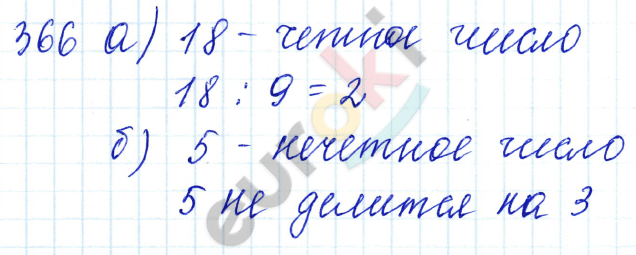 366 а) 18 - четное число
18 : 9 = 2
б) 5 - нечетное число
5 не делится на 3
euroki